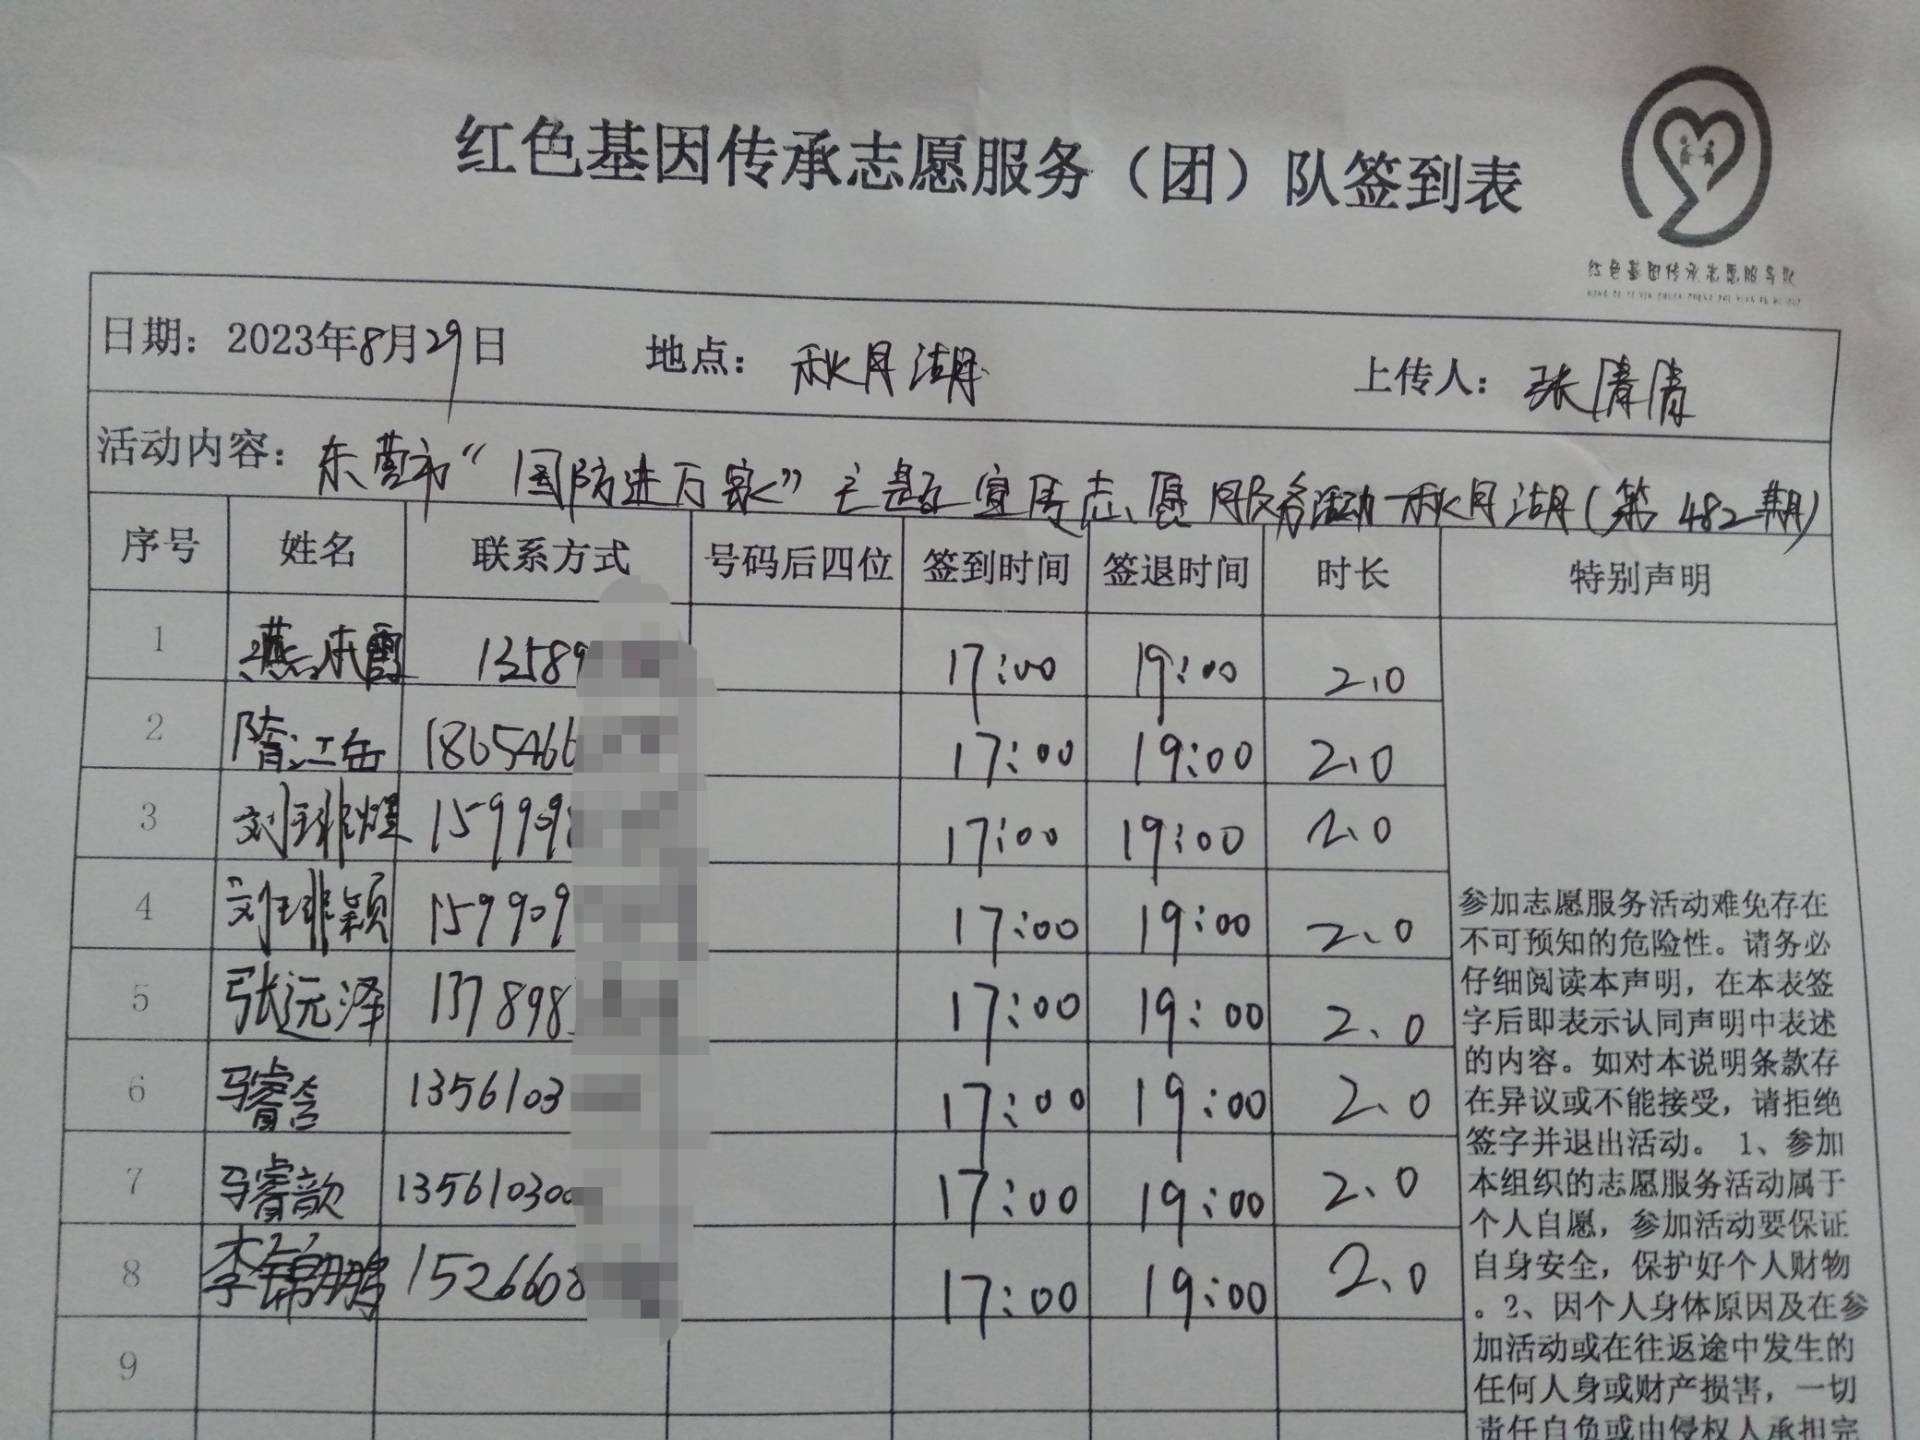 红色基因传承志愿服务（团）队签到表
红色基因传承志愿服务队
日期：2023年8月29日 地点：秋月湖 上传人：张清清
活动内容：东营市“国防进万家”主题宣传志愿服务活动—秋月湖（第482期）
序号 姓名 联系方式 号码后四位 签到时间 签退时间 时长 特别声明
1 燕本霞 13589 17:00 19:00 2.0
2 隋江岳 1865466 17:00 19:00 2.0
3 刘琲煜 159909 17:00 19:00 2.0
4 刘琲颖 159909 17:00 19:00 2.0
5 张远泽 137898 17:00 19:00 2.0
6 马睿含 1356103 17:00 19:00 2.0
7 马睿歆 135610300 17:00 19:00 2.0
8 李锦鹏 1526608 17:00 19:00 2.0
9
参加志愿服务活动难免存在
不可预知的危险性。请务必
仔细阅读本声明，在本表签
字后即表示认同声明中表述
的内容。如对本说明条款存
在异议或不能接受，请拒绝
签字并退出活动。 1、参加
本组织的志愿服务活动属于
个人自愿，参加活动要保证
自身安全，保护好个人财物
。2、因个人身体原因及在参
加活动或在往返途中发生的
任何人身或财产损害，一切
责任自负或由侵权人承担完